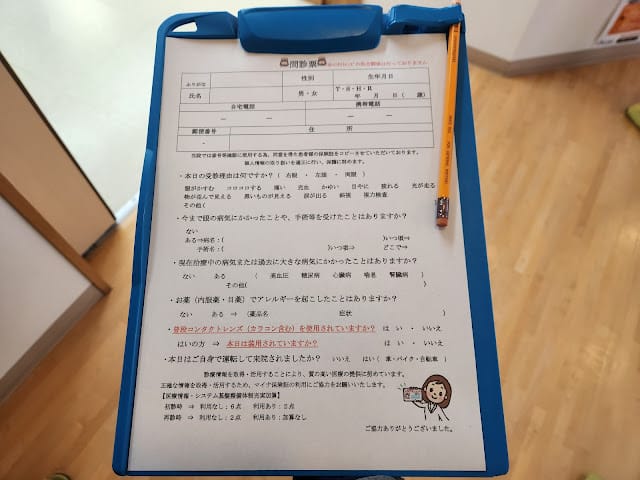 問診票
ふりがな
性別
生年月日
氏名
男・女
T・S・H・R
年 月 日( 歳)
自宅電話
携帯電話
ー ー
ー ー
郵便番号
住 所
-
当院では番号等確認に使用する為、同意を得た患者様の保険証をコピーさせていただいております。
個人情報の取り扱いを適正に行い、保護に努めます。
・本日の受診理由は何ですか?( 右眼 ・ 左眼 ・ 両眼 )
眼がかすむ コロコロする 痛い 充血 かゆい 目やに 疲れる 光が走る
物が歪んで見える 黒いものが見える 涙が出る 斜視 視力検査
その他(
・今まで眼の病気にかかったことや、手術等を受けたことはありますか?
ない
ある⇒病名:( )いつ頃⇒
手術名:( )いつ頃⇒ どこで⇒
・現在治療中の病気または過去に大きな病気にかかったことはありますか?
ない ある ( 高血圧 糖尿病 心臓病 喘息 腎臓病 )
その他( )
・お薬(内服薬・目薬)でアレルギーを起こしたことはありますか?
ない ある ⇒ (薬品名 症状 )
・普段コンタクトレンズ(カラコン含む)を使用されていますか? は い ・ いいえ
はいの方 ⇒ 本日は装用されていますか? は い ・ いいえ
・本日はご自身で運転して来院されましたか? いいえ はい( 車・バイク・自転車 )
診療情報を取得・活用することにより、質の高い医療の提供に努めています。
正確な情報を取得・活用するため、マイナ保険証の利用にご協力をお願いいたします。
【医療情報・システム基盤整備体制充実加算】
初診時 ⇒ 利用なし:6点 利用あり:2点
再診時 ⇒ 利用なし:2点 利用あり:加算なし
ご協力ありがとうございました。